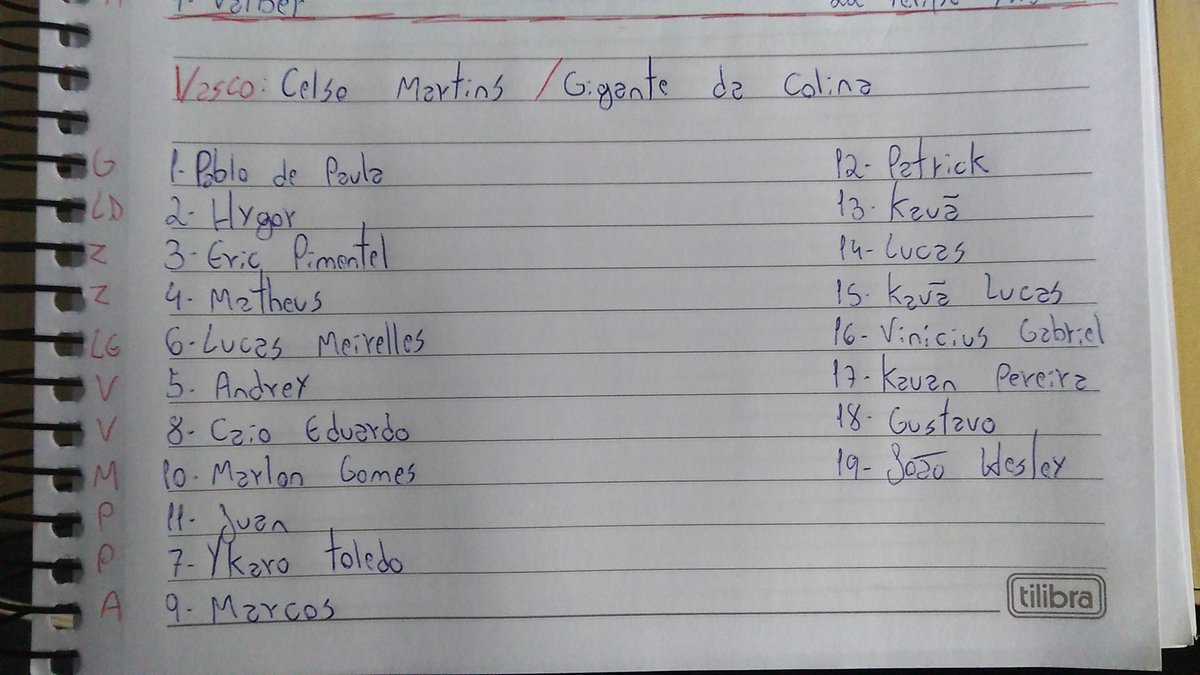 1- Valber
Vasco: Celso Martins / Gigante da Colina
G 1- Pablo de Paula 12- Patrick
LD 2- Hygor 13- Kauã
Z 3- Eric Pimentel 14- Lucas
Z 4- Matheus 15- Kauã Lucas
LE 6- Lucas Meirelles 16- Vinicius Gabriel
V 5- Andrey 17- Kauan Pereira
V 8- Caio Eduardo 18- Gustavo
M 10- Marlon Gomes 19- João Wesley
P 11- Juan
P 7- Ykaro Toledo
A 9- Marcos
tilibra